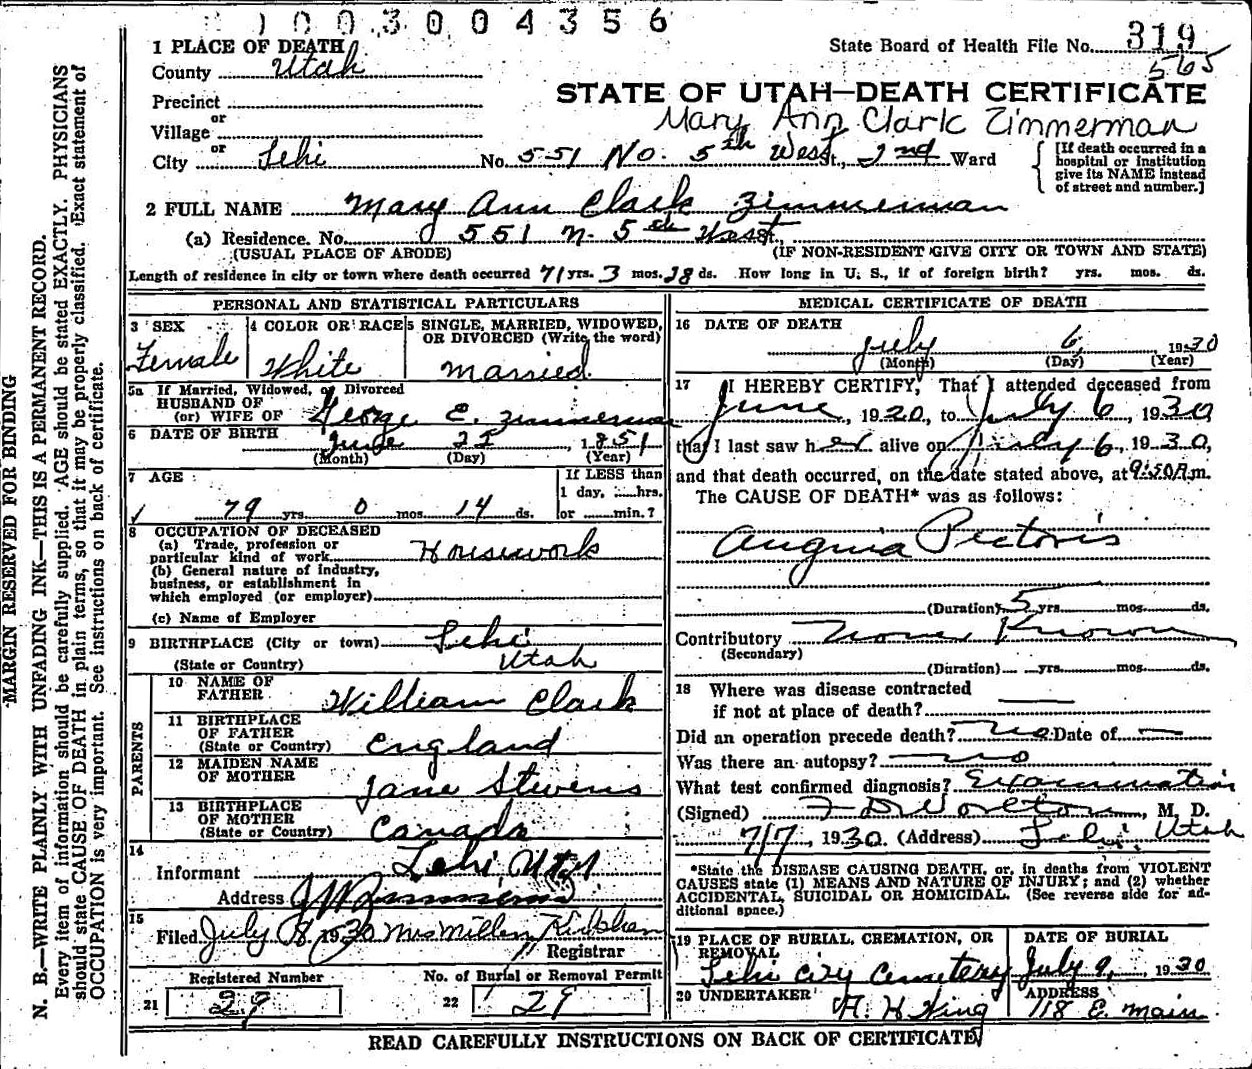 1003004356
1 PLACE OF DEATH
State Board of Health File No. 319
565
County Utah
STATE OF UTAH—DEATH CERTIFICATE
Precinct
or
Mary Ann Clark Zimmerman
Village
or
City Lehi No. 551 No. 5th West St., 2nd Ward
[If death occurred in a
hospital or institution
give its NAME instead
of street and number.]
2 FULL NAME Mary Ann Clark Zimmerman
(a) Residence. No. 551 N. 5th West
(USUAL PLACE OF ABODE) (IF NON-RESIDENT GIVE CITY OR TOWN AND STATE)
Length of residence in city or town where death occurred 71 yrs. 3 mos. 28 ds. How long in U. S., if of foreign birth? yrs. mos. ds.
PERSONAL AND STATISTICAL PARTICULARS
3 SEX
Female
4 COLOR OR RACE
White
5 SINGLE, MARRIED, WIDOWED,
OR DIVORCED (Write the word)
Married
5a If Married, Widowed, or Divorced
HUSBAND OF
(or) WIFE OF George E. Zimmerman
6 DATE OF BIRTH June 22 1851
(Month) (Day) (Year)
7 AGE
79 yrs. 0 mos. 14 ds.
If LESS than
1 day, hrs.
or min.?
8 OCCUPATION OF DECEASED
(a) Trade, profession or
particular kind of work Housework
(b) General nature of industry,
business, or establishment in
which employed (or employer)
(c) Name of Employer
9 BIRTHPLACE (City or town) Lehi
(State or Country) Utah
PARENTS
10 NAME OF
FATHER William Clark
11 BIRTHPLACE
OF FATHER
(State or Country) England
12 MAIDEN NAME
OF MOTHER Jane Stevens
13 BIRTHPLACE
OF MOTHER
(State or Country) Canada
14
Informant Lehi Utah
Address
15
Filed July 8 1930 Mrs Millen
Registrar
Registered Number
21 29
No. of Burial or Removal Permit
22 29
MEDICAL CERTIFICATE OF DEATH
16 DATE OF DEATH
July 6, 1930
(Month) (Day) (Year)
17 I HEREBY CERTIFY, That I attended deceased from
June, 1920, to July 6, 1930
that I last saw her alive on July 6, 1930,
and that death occurred, on the date stated above, at 9:50 A.m.
The CAUSE OF DEATH* was as follows:
Anginia Pectoris
(Duration) 5 yrs. mos. ds.
Contributory None Known
(Secondary)
(Duration) yrs. mos. ds.
18 Where was disease contracted
if not at place of death? —
Did an operation precede death? No Date of —
Was there an autopsy? no
What test confirmed diagnosis? Examination
(Signed) M. D.
7/7, 1930. (Address) Lehi, Utah
*State the DISEASE CAUSING DEATH, or, in deaths from VIOLENT
CAUSES state (1) MEANS AND NATURE OF INJURY; and (2) whether
ACCIDENTAL, SUICIDAL OR HOMICIDAL. (See reverse side for ad-
ditional space.)
19 PLACE OF BURIAL, CREMATION, OR
REMOVAL
Lehi City Cemetery
DATE OF BURIAL
July 9, 1930
20 UNDERTAKER
A. H. King
ADDRESS
118 E. Main
READ CAREFULLY INSTRUCTIONS ON BACK OF CERTIFICATE
MARGIN RESERVED FOR BINDING
N. B.—WRITE PLAINLY WITH UNFADING INK—THIS IS A PERMANENT RECORD.
Every item of information should be carefully supplied. AGE should be stated EXACTLY. PHYSICIANS
should state CAUSE OF DEATH in plain terms, so that it may be properly classified. Exact statement of
OCCUPATION is very important. See instructions on back of certificate.